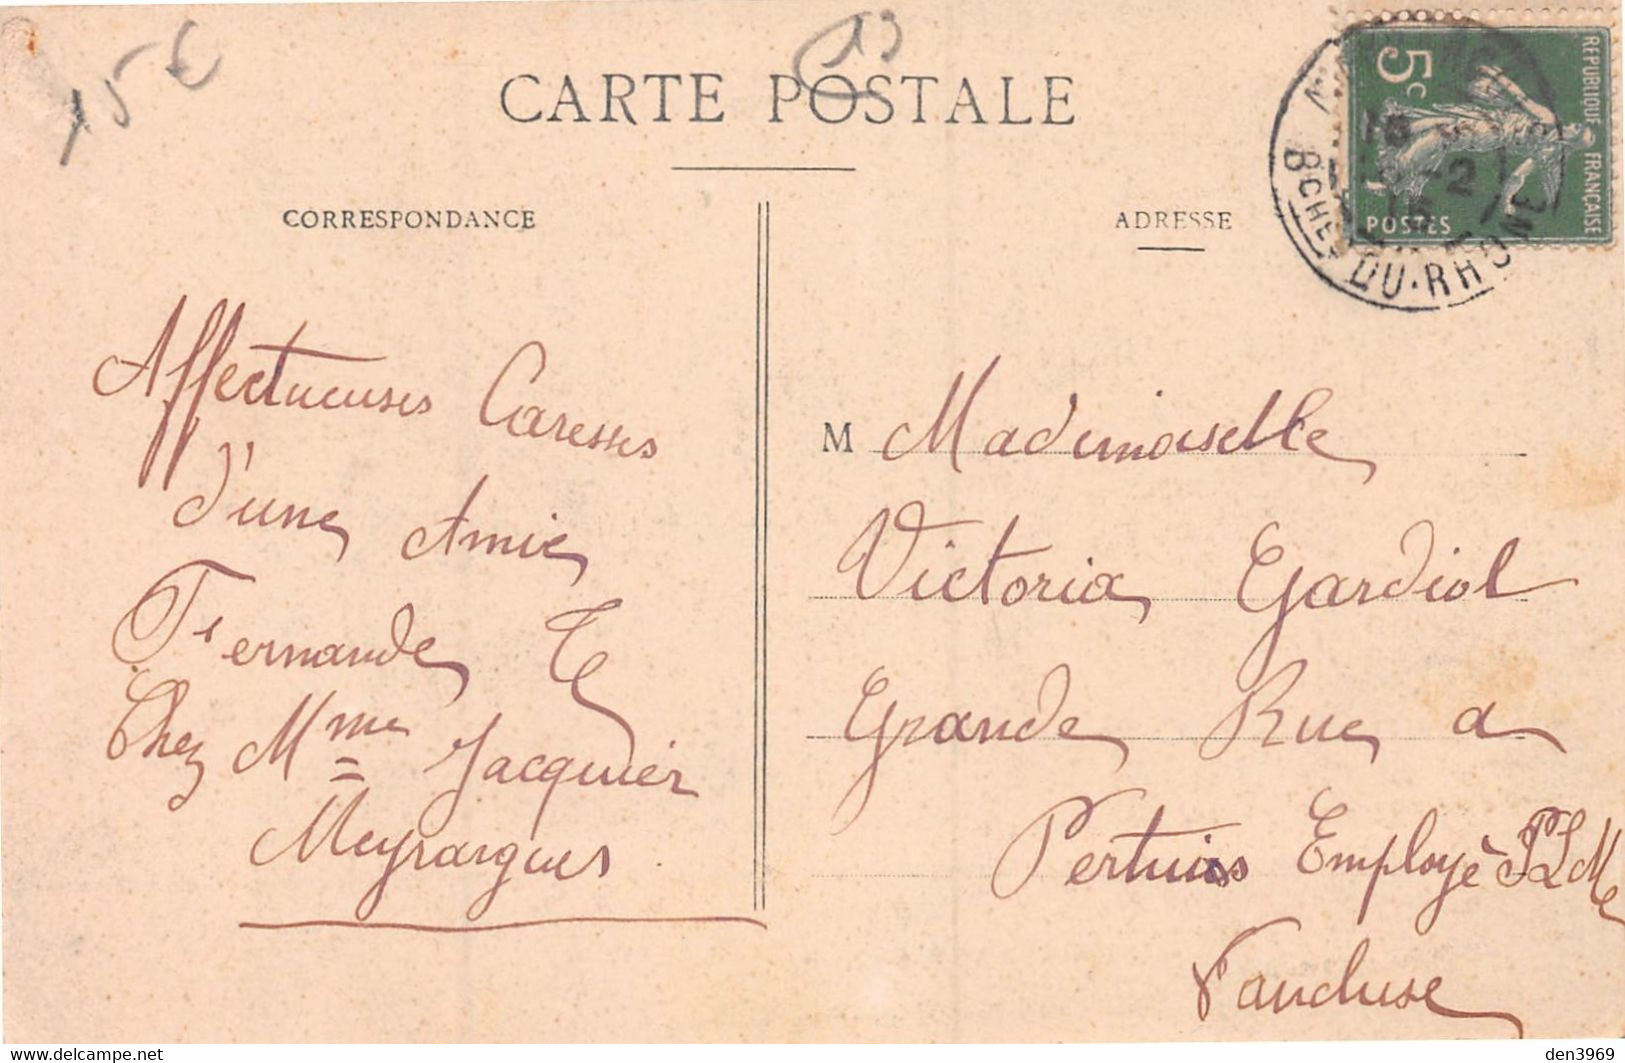 15 €
13
CARTE POSTALE
CORRESPONDANCE
ADRESSE
REPUBLIQUE FRANÇAISE
5c
POSTES
BCHES DU-RHONE
Affectueuses Caresses
d'une Amie
Fernande
Chez Mme Jacquier
Meyrargues
M Mademoiselle
Victoria Gardiol
Grande Rue a
Pertuis Employè PLM
Vaucluse
delcampe.net
den3969